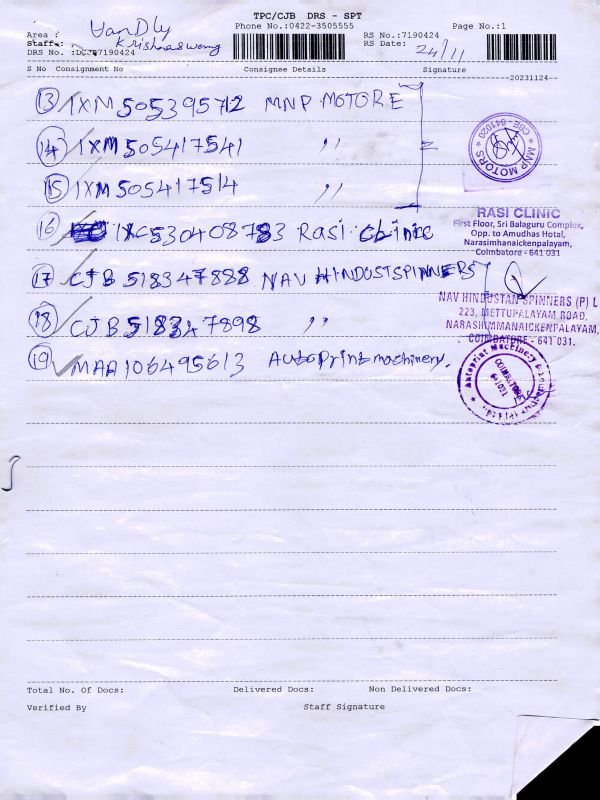 TPC/CJB DRS - SPT
Area : Van Dly Phone No.:0422-3505555 RS No.:7190424 Page No.:1
Staff.: Krishnaswamy RS Date: 24/11
DRS No. :DCJ7190424
S No Consignment No Consignee Details Signature
20231124
13 IXM 505395712 MNP MOTORE
14 IXM 505417541 ,,
15 IXM 505417514 ,,
* MNP MOTORS * CBE-641020
16 IXC530408783 Rasi Clinic
RASI CLINIC
First Floor, Sri Balaguru Complex,
Opp. to Amudhas Hotal,
Narasimhanaickenpalayam,
Coimbatore - 641 031
17 CJB 518347888 NAV HINDUSTSPINNERS
18 CJB518347898 ,,
NAV HINDUSTAN SPINNERS (P) L
223, METTUPALAYAM ROAD,
NARASHIMMANAICKENPALAYAM,
COIMBATORE - 641 031.
19 MAA106495613 Autoprint machinery.
Autoprint Machinery
COIMBATORE
641 031
Total No. Of Docs: Delivered Docs: Non Delivered Docs:
Verified By Staff Signature